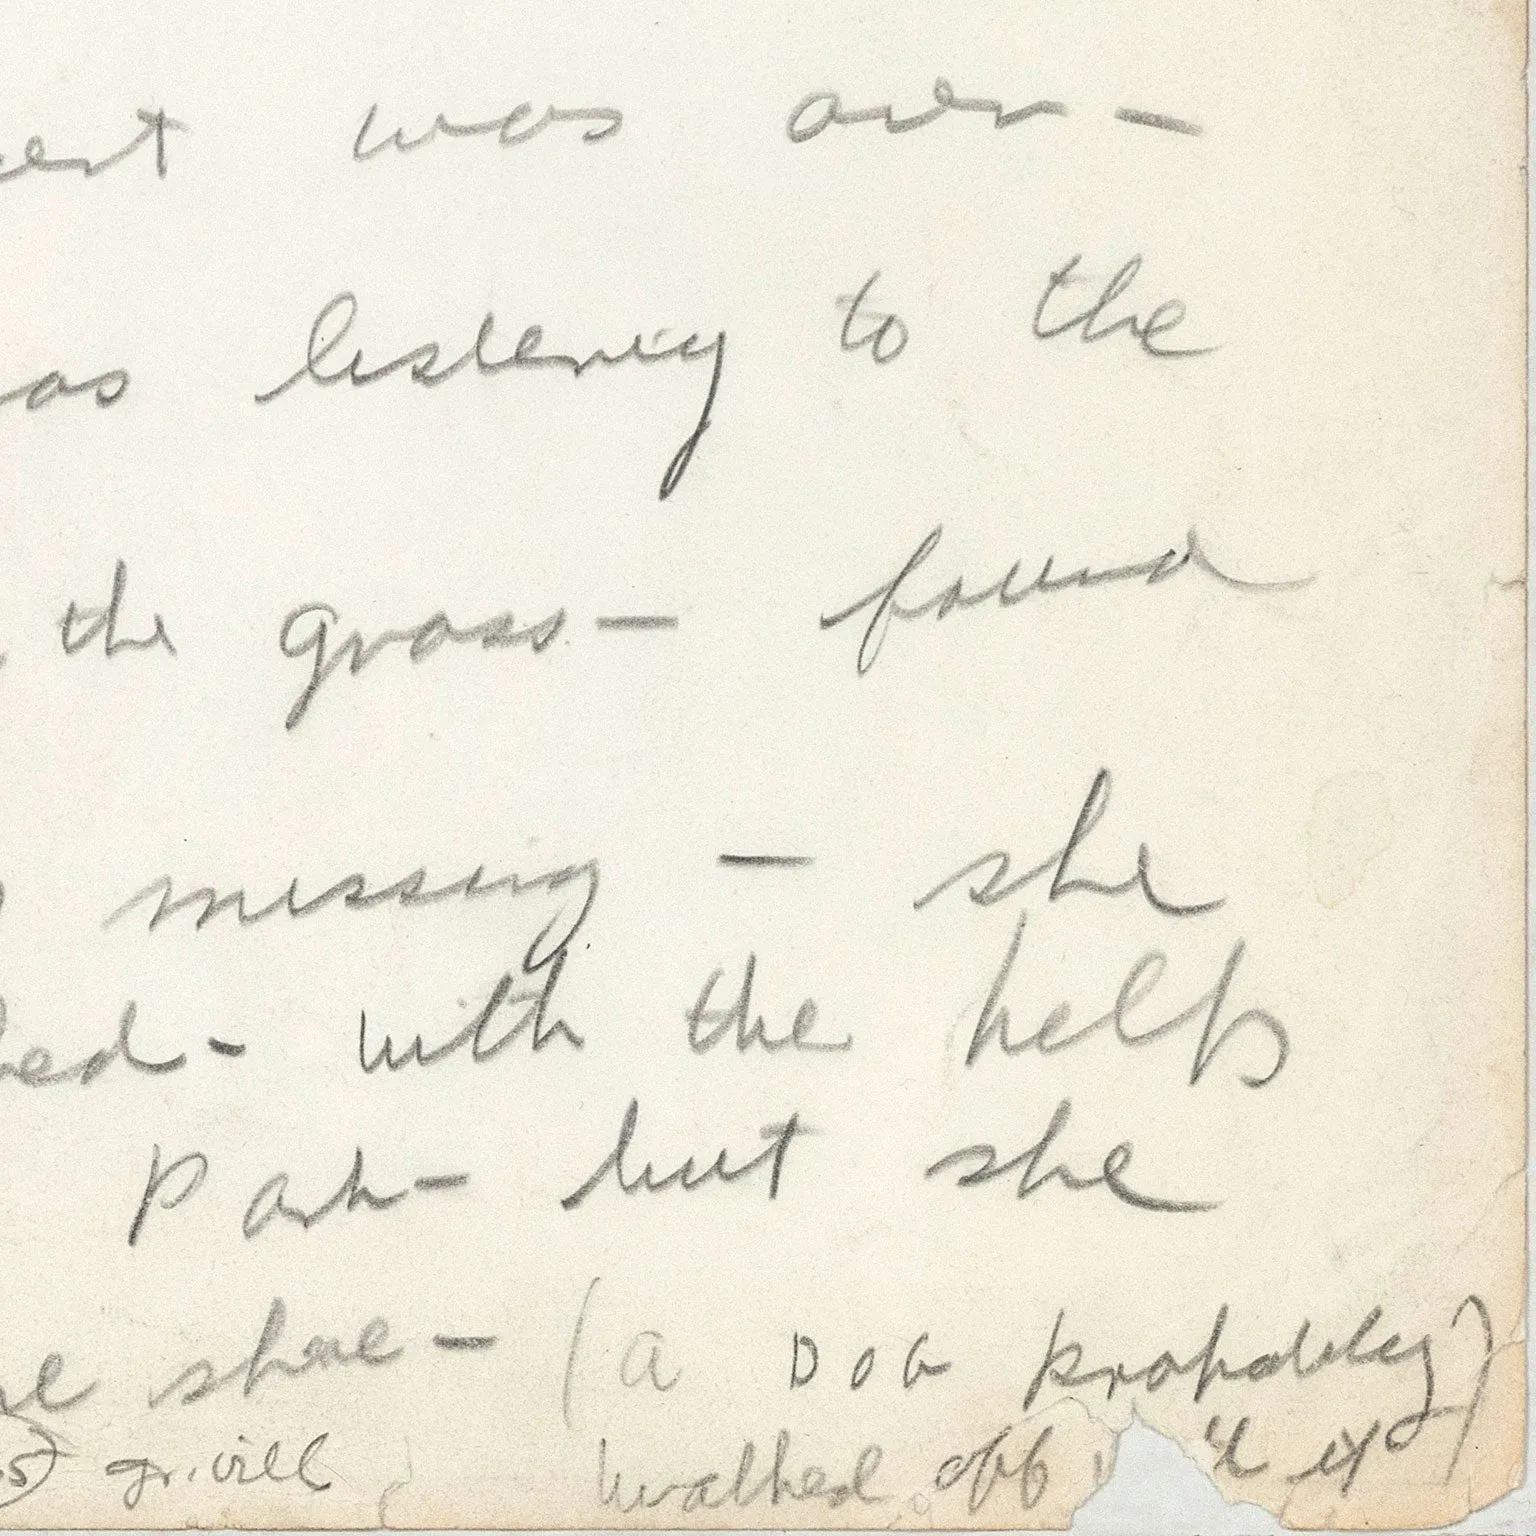 was over —
as listening to the
the grass — found
missing — she
with the help
Park — but she
shoe — (a DOG probably)
walked off